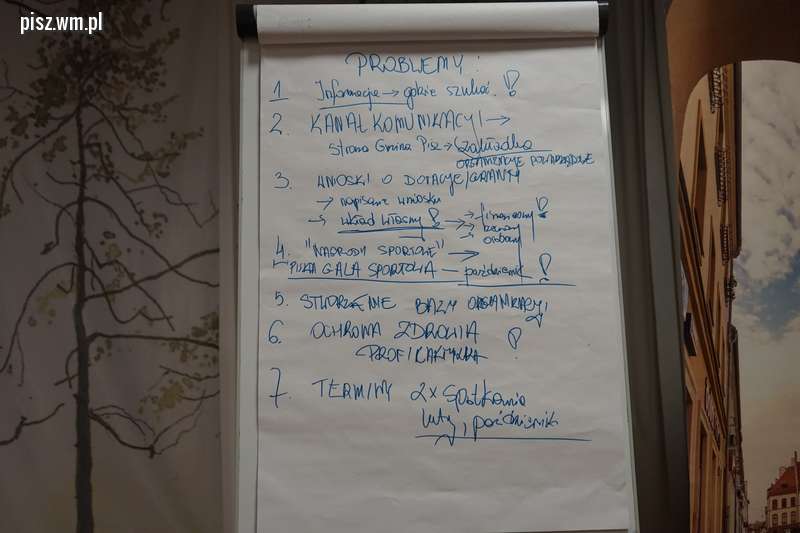 pisz.wm.pl
PROBLEMY:
1 Informacje → gdzie szukać. !
2. KANAŁ KOMUNIKACYJ →
strona Gmina Pisz → zakładka
ORGANIZACJE POZARZĄDOWE
3. WNIOSKI O DOTACJE/GRANTY
→ napisanie wniosku
→ wkład własny ! → → finansowy !
→ rzeczowy
→ osobowy
4. "NAGRODY SPORTOWE" →
PISKA GALA SPORTOWA — październik !
5. STWORZENIE BAZY ORGANIZACYJ
6. OCHRONA ZDROWIA !
PROFILAKTYKA
7. TERMINY 2x Spotkania
luty, październik